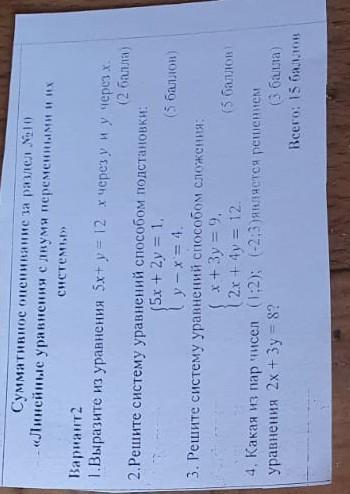 Суммативное оценивание за раздел №10
«Линейные уравнения с двумя переменными и их
системы»
Вариант2
1.Выразите из уравнения 5x+ y = 12 x через y и y через x.
(2 балла)
2.Решите систему уравнений способом подстановки:
{5x + 2y = 1,
{y − x = 4.
(5 баллов)
3. Решите систему уравнений способом сложения:
{x + 3y = 9,
{2x + 4y = 12.
(5 баллов)
4. Какая из пар чисел (1;2); (-2;3)является решением
уравнения 2x + 3y = 8? (3 балла)
Всего: 15 баллов